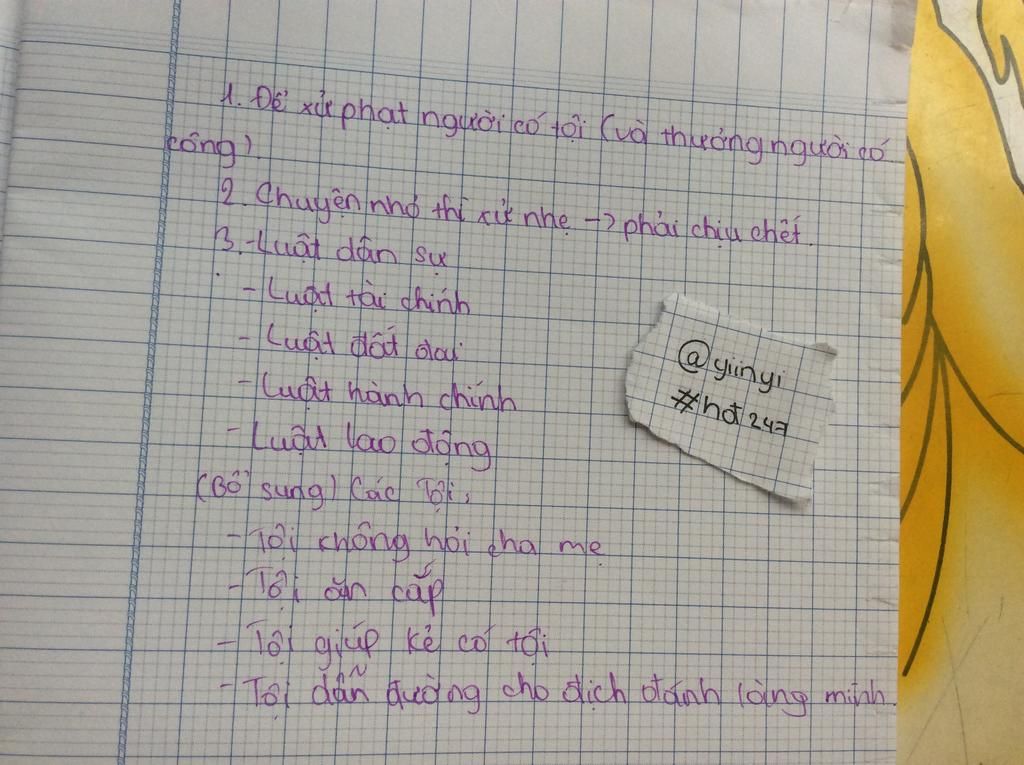 1. Để xử phạt người có tội (và thưởng người có
công).
2. Chuyện nhỏ thì xử nhẹ → phải chịu chết.
3. - Luật dân sự
- Luật tài chính
- Luật đất đai
- Luật hành chính
- Luật lao động
(Bổ sung) Các Tội:
- Tội không hỏi cha mẹ
- Tội ăn cắp
- Tội giúp kẻ có tội
- Tội dẫn đường cho địch đánh làng mình.
@yiinyi
#hđ247